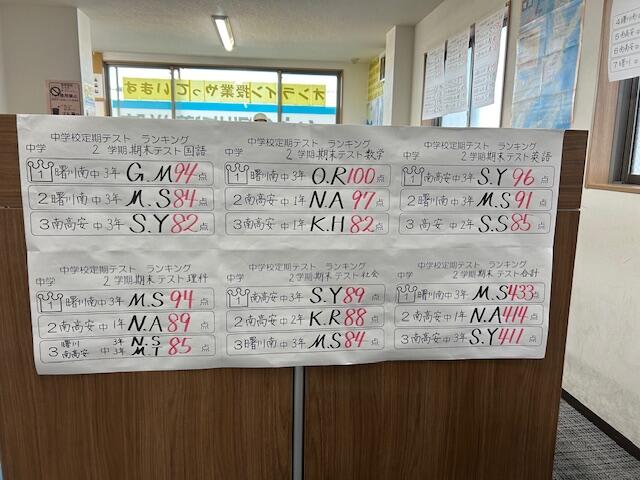 オンライン授業やっています
中学校定期テスト ランキング
中学 2学期期末テスト国語
1 曙川南中3年 G.M 94点
2 曙川南中3年 M.S 84点
3 南高安中3年 S.Y 82点
中学校定期テスト ランキング
2学期期末テスト数学
1 曙川南中3年 O.R 100点
2 南高安中1年 N.A 97点
3 南高安中1年 K.H 82点
中学校定期テスト ランキング
2学期期末テスト英語
1 南高安中3年 S.Y 96点
2 曙川南中3年 M.S 91点
3 高安中2年 S.S 85点
中学校定期テスト ランキング
2学期期末テスト理科
1 曙川南中3年 M.S 94点
2 南高安中1年 N.A 89点
3 曙川 3年 N.S 85点
南高安中3年 M.T
中学校定期テスト ランキング
2学期期末テスト社会
1 南高安中3年 S.Y 89点
2 南高安中2年 K.R 88点
3 曙川南中3年 M.S 84点
中学校定期テスト ランキング
2学期期末テスト合計
1 曙川南中3年 M.S 433点
2 南高安中1年 N.A 414点
3 南高安中3年 S.Y 411点